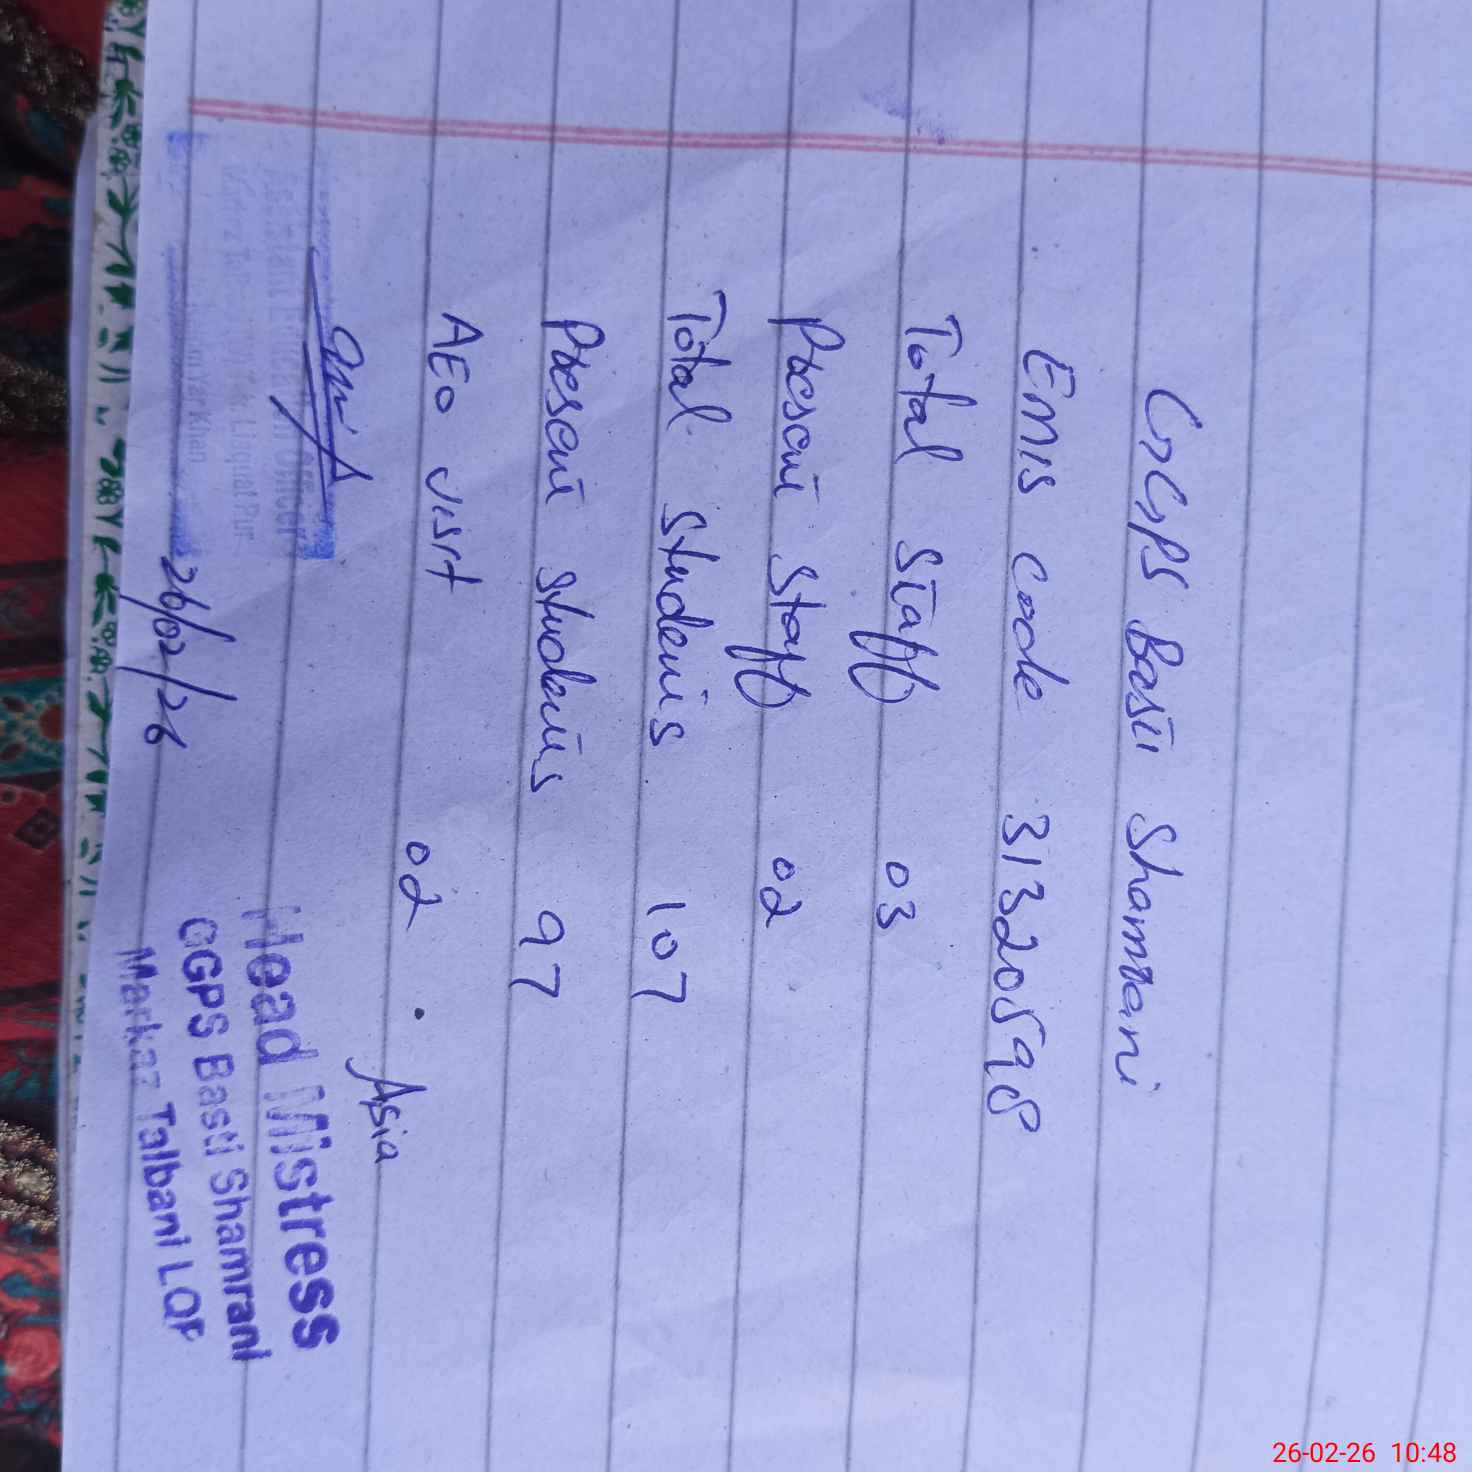 GGPS Basti Shamrani
Emis code 31320598
Total Staff 03
Present Staff 02
Total Students 107
Present Students 97
AEO visit 02
Asia
26/02/26
Head Mistress
GGPS Basti Shamrani
Markaz Talbani LQP
Liaquat Pur
Khan
26-02-26 10:48